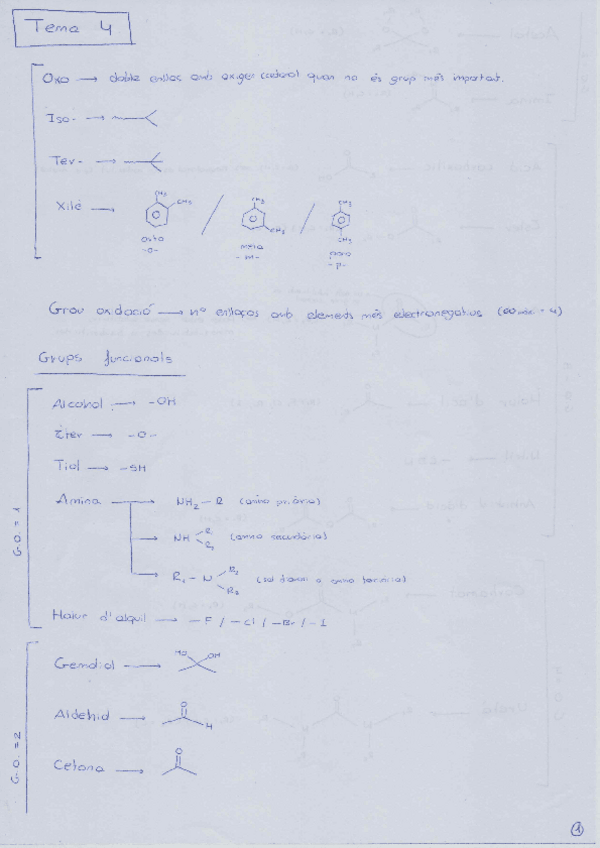 Tema 4
Oxo → doble enllaç amb oxigen (cetona) quan no és grup més important.
Iso- →
Ter- →
Xilè →
CH3 CH3 / CH3 CH3 / CH3 CH3
orto meta para
-o- -m- -p-
Grau oxidació → nº enllaços amb elements més electronegatius (GO màx = 4)
Grups funcionals
G.O. = 1
Alcohol → -OH
Èter → -O-
Tiol → -SH
Amina → NH2 - R (amina primària)
→ NH R1 R2 (amina secundària)
→ R1 - N R3 R2 (amina terciària)
Halur d'alquil → -F / -Cl / -Br / -I
G.O. = 2
Gemdiol → HO OH
Aldehid → O H
Cetona → O
1